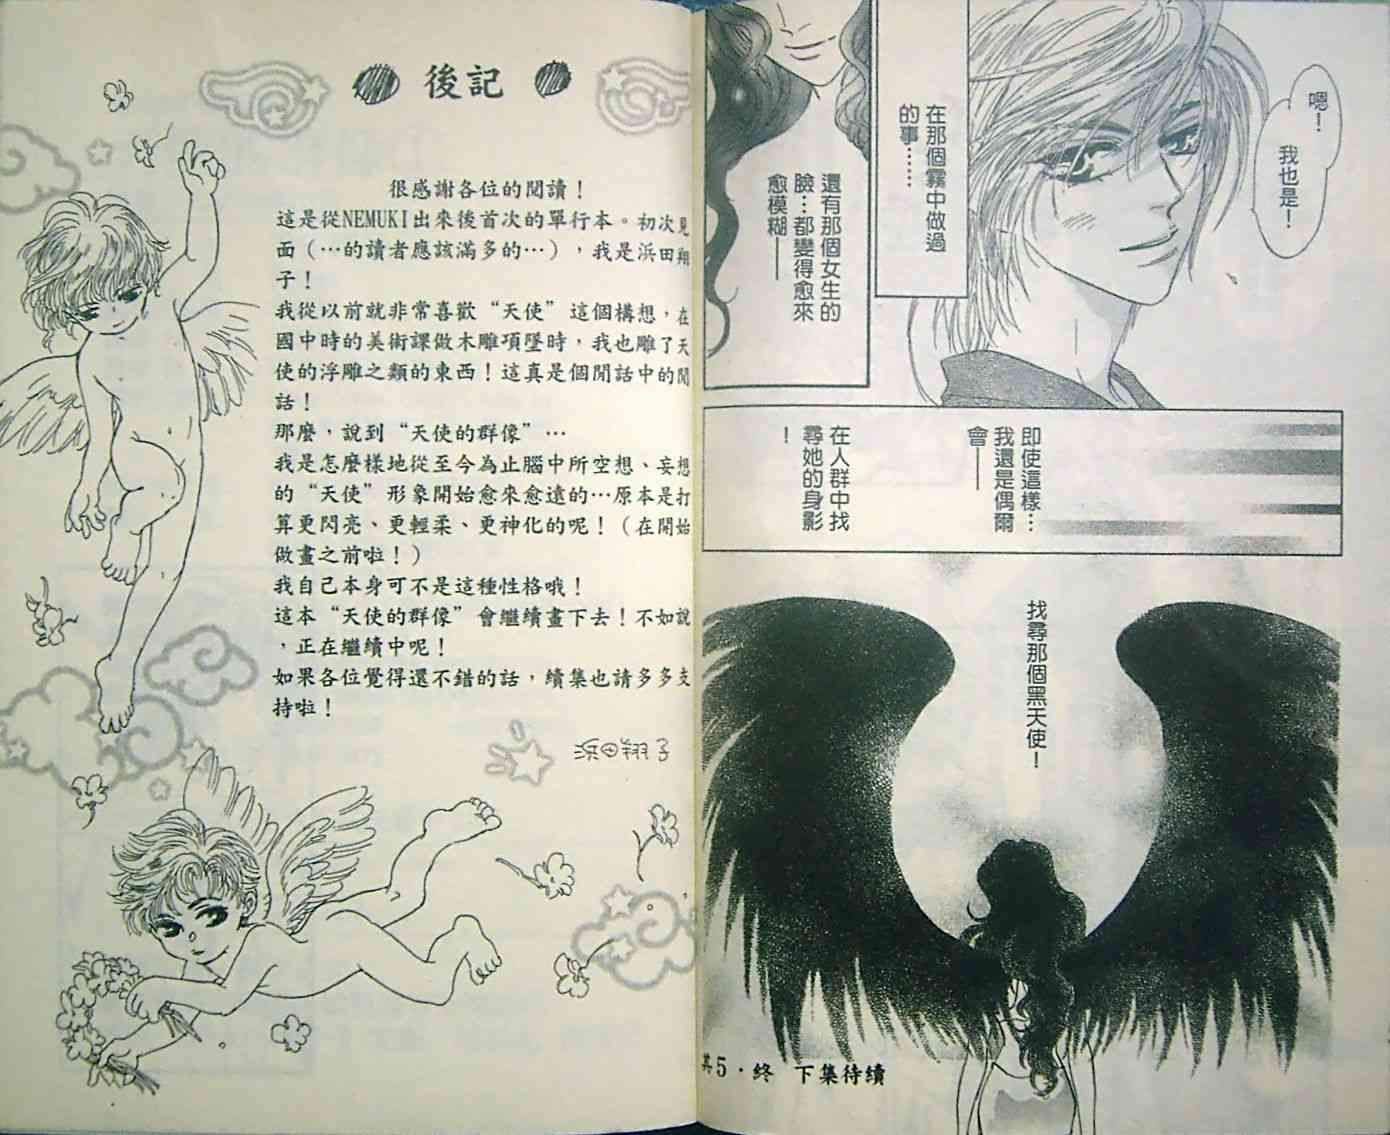 嗯！
我也是！
在那個霧中做過
的事……
還有那個女生的
臉…都變得愈來
愈模糊——
即使這樣…
我還是偶爾
會——
在人群中找
尋她的身影
！
找尋那個黑天使！
其5・終 下集待續
後記
很感謝各位的閱讀！
這是從NEMUKI出來後首次的單行本。初次見
面（…的讀者應該滿多的…），我是浜田翔
子！
我從以前就非常喜歡“天使”這個構想，在
國中時的美術課做木雕項墜時，我也雕了天
使的浮雕之類的東西！這真是個閒話中的閒
話！
那麼，說到“天使的群像”…
我是怎麼樣地從至今為止腦中所空想、妄想
的“天使”形象開始愈來愈遠的…原本是打
算更閃亮、更輕柔、更神化的呢！（在開始
做畫之前啦！）
我自己本身可不是這種性格哦！
這本“天使的群像”會繼續畫下去！不如說
，正在繼續中呢！
如果各位覺得還不錯的話，續集也請多多支
持啦！
浜田翔子